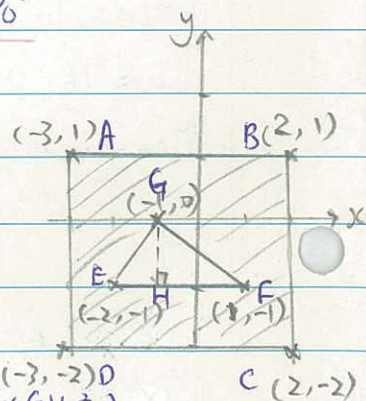 y
(-3, 1) A B (2, 1)
G
(-1, 0)
x
E H F
(-2, -1) (1, -1)
(-3, -2) D C (2, -2)